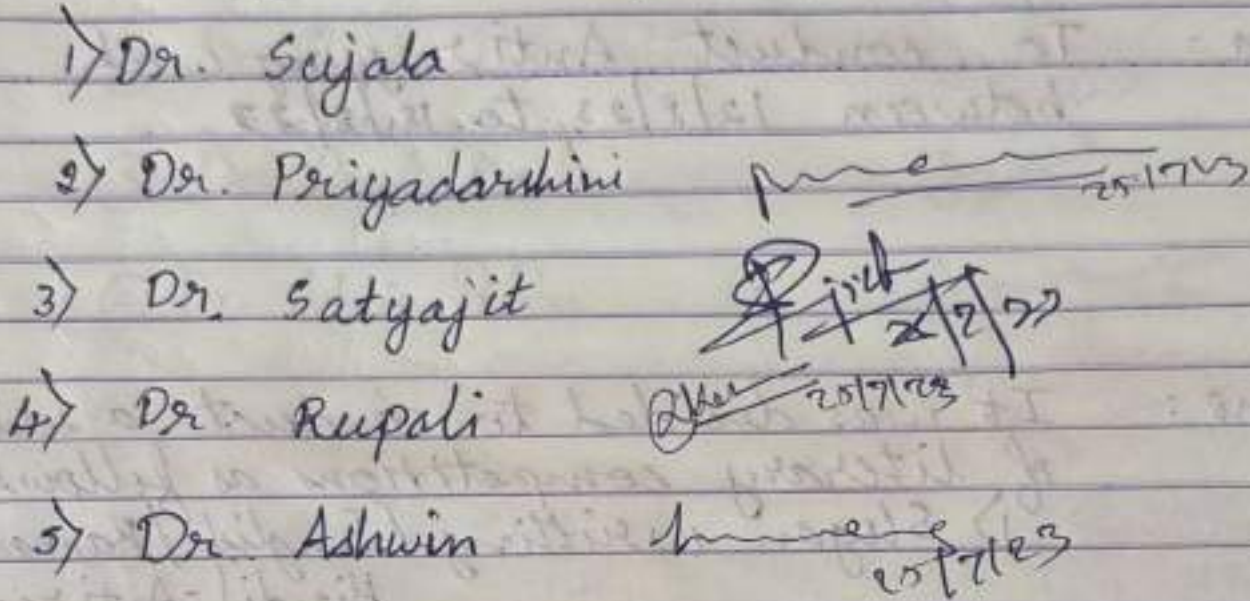 1) Dr. Sujala
2) Dr. Priyadarshini 25/7/23
3) Dr. Satyajit
4) Dr. Rupali 25/7/23
5) Dr. Ashwin 25/7/23